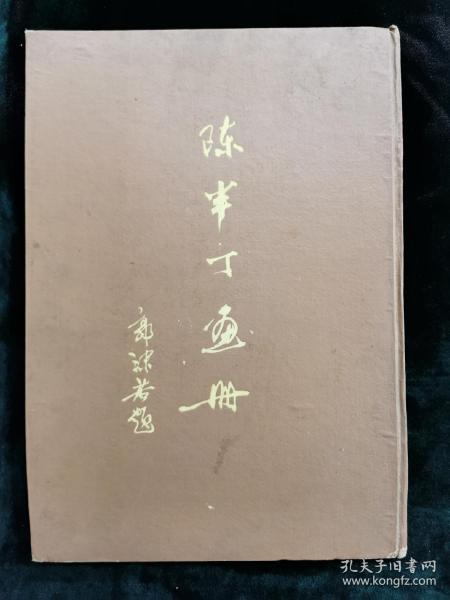 陈半丁画册
郭沫若题
孔夫子旧书网
www.kongfz.com